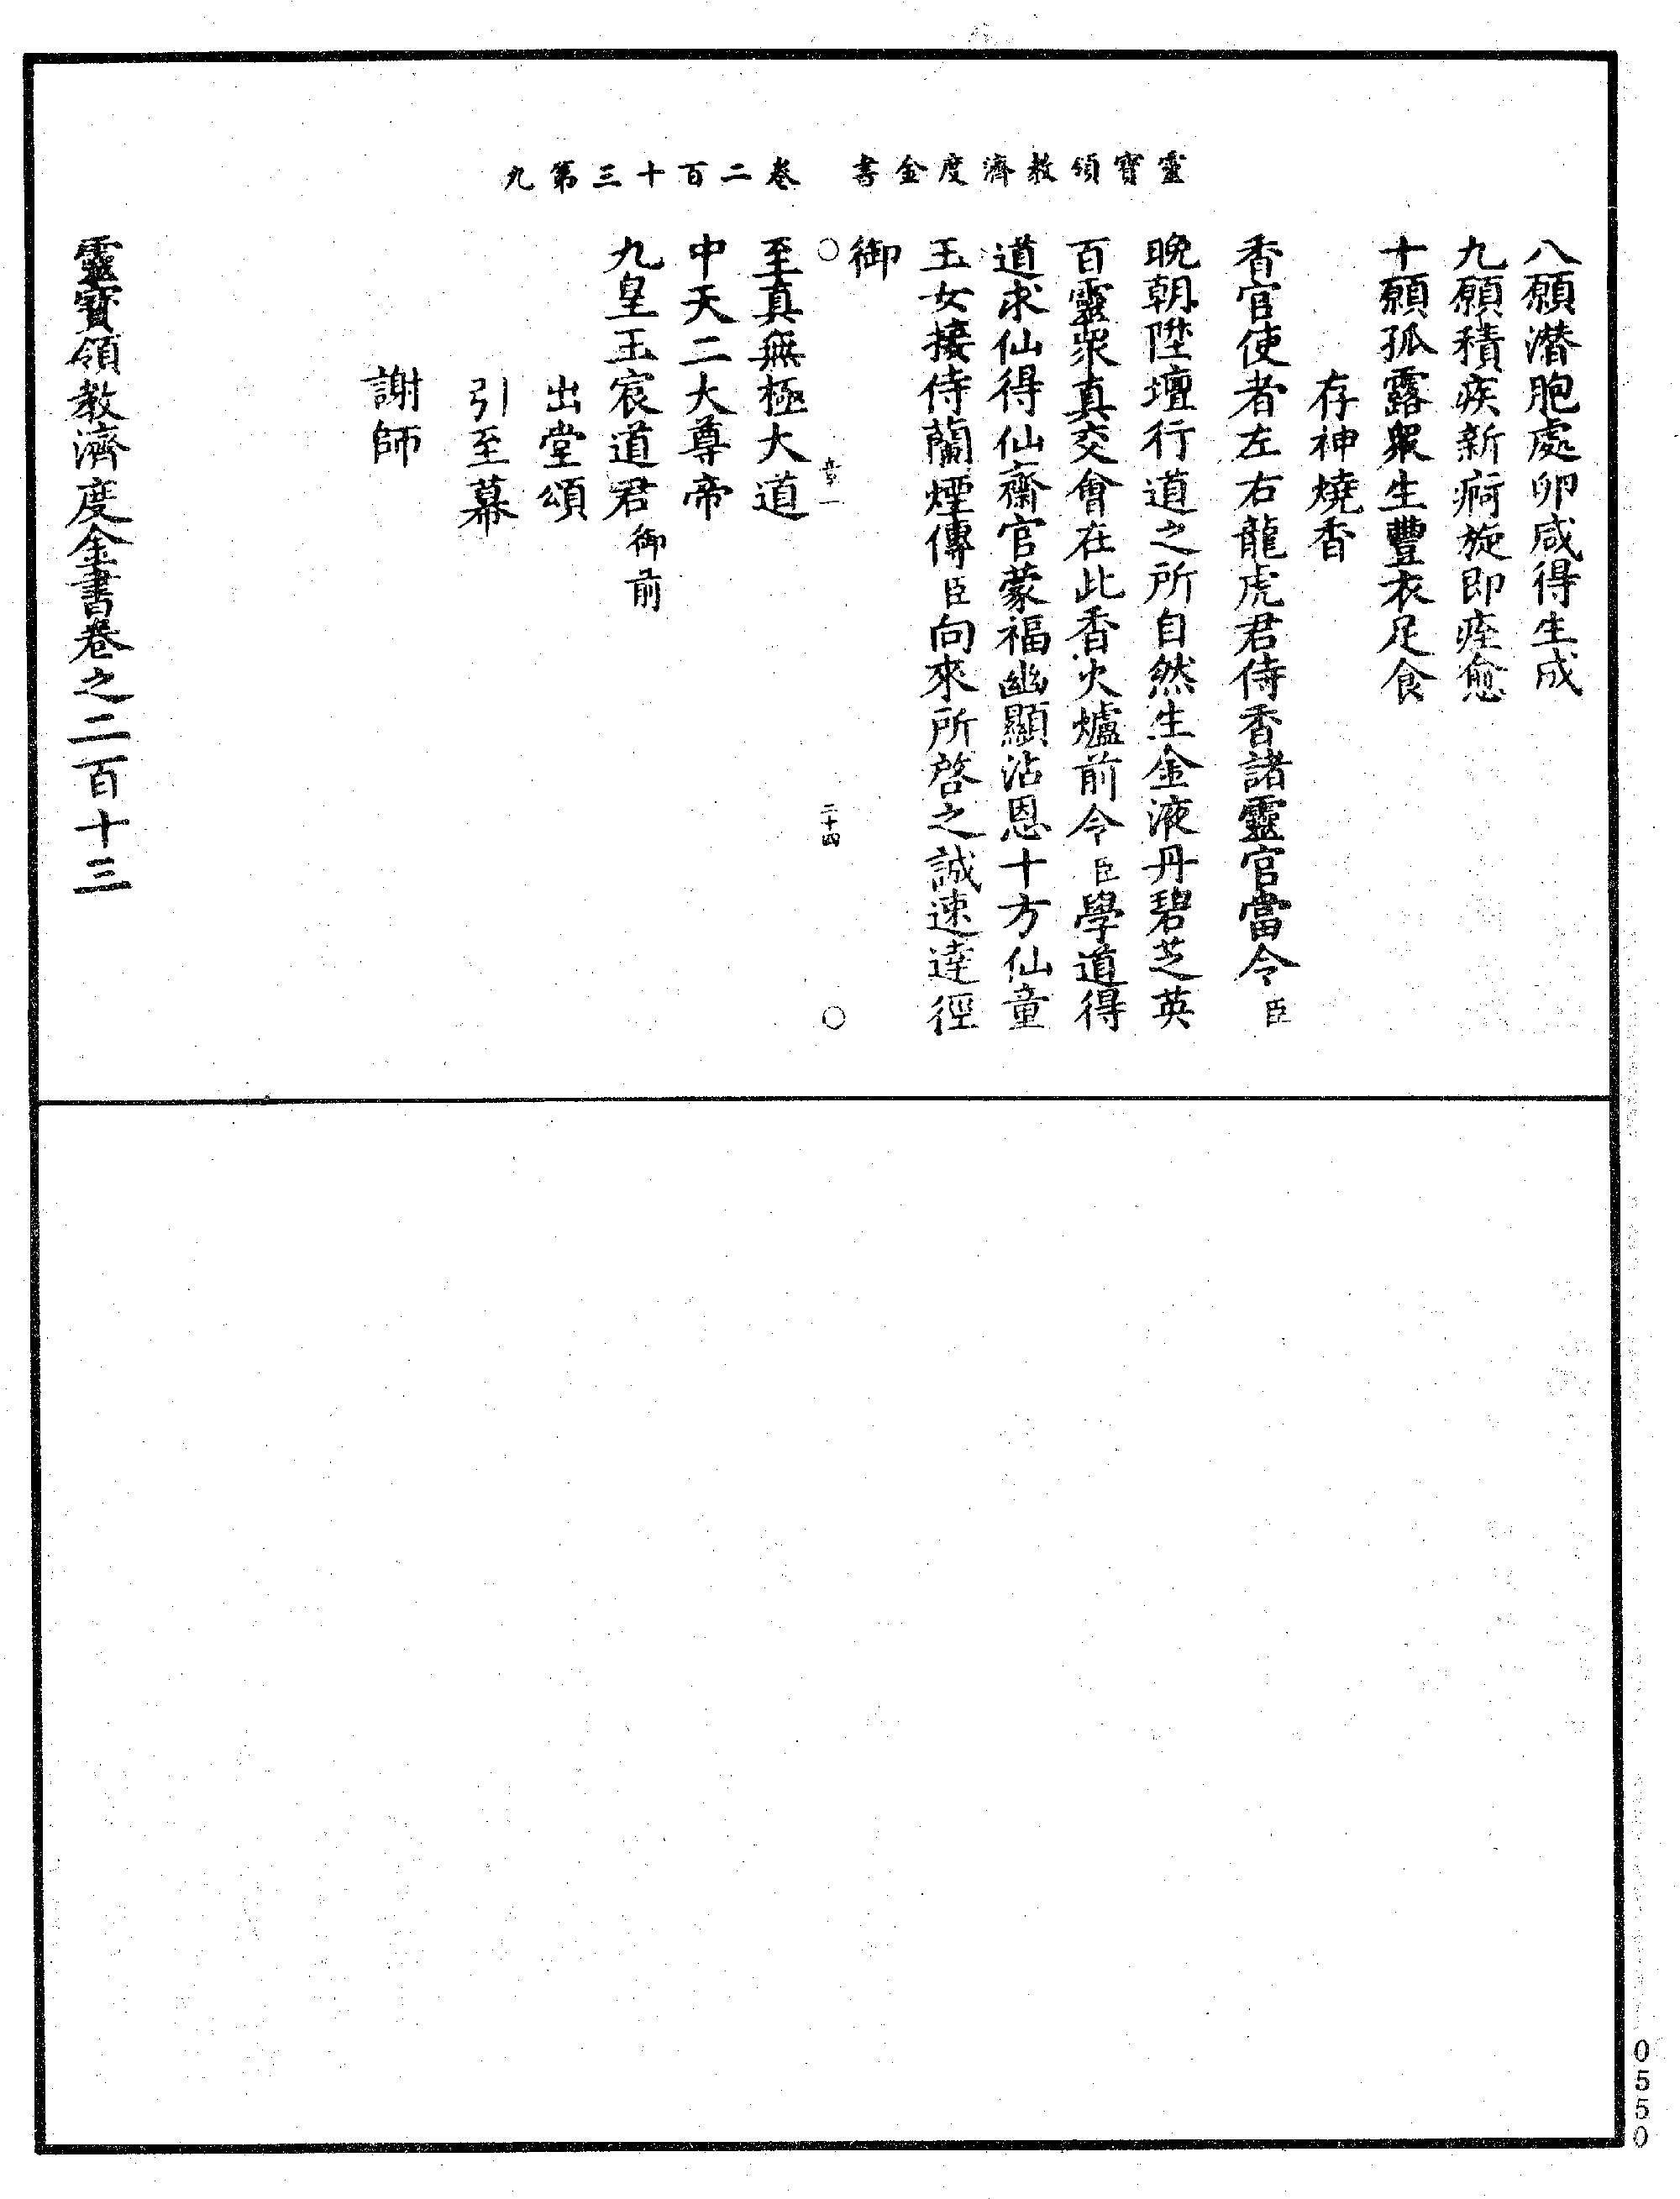 靈寶領教濟度金書　卷二百十三第九
八願潛胞處卵咸得生成
九願積疾新痾旋即痊愈
十願孤露衆生豐衣足食
存神燒香
香官使者左右龍虎君侍香諸靈官當令臣
晚朝陞壇行道之所自然生金液丹碧芝英
百靈衆真交會在此香火爐前令臣學道得
道求仙得仙齋官蒙福幽顯沾恩十方仙童
玉女接侍蘭煙傳臣向來所啓之誠速達徑
御
○　章一　二十四　○
至真無極大道
中天二大尊帝
九皇玉宸道君御前
出堂頌
引至幕
謝師
靈寶領教濟度金書卷之二百十三
0550